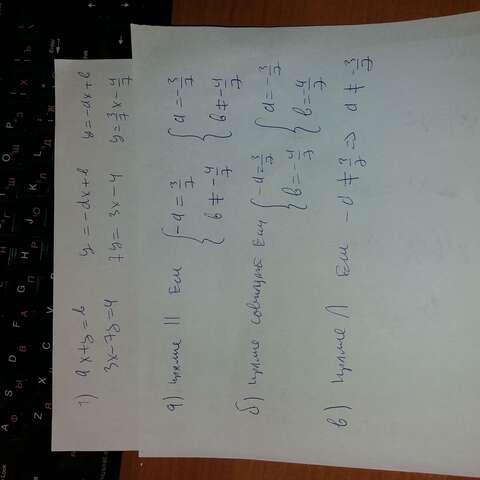 1) ax+y=b y=-ax+b y=-ax+b
3x-7y=4 7y=3x-4 y=3/7x-4/7
а) прямые || Если { -a=3/7 b≠-4/7 { a=-3/7 b≠-4/7
б) прямые совпадут Если { -a=3/7 b=-4/7 { a=-3/7 b=-4/7
в) прямые Если -a≠3/7 => a≠-3/7